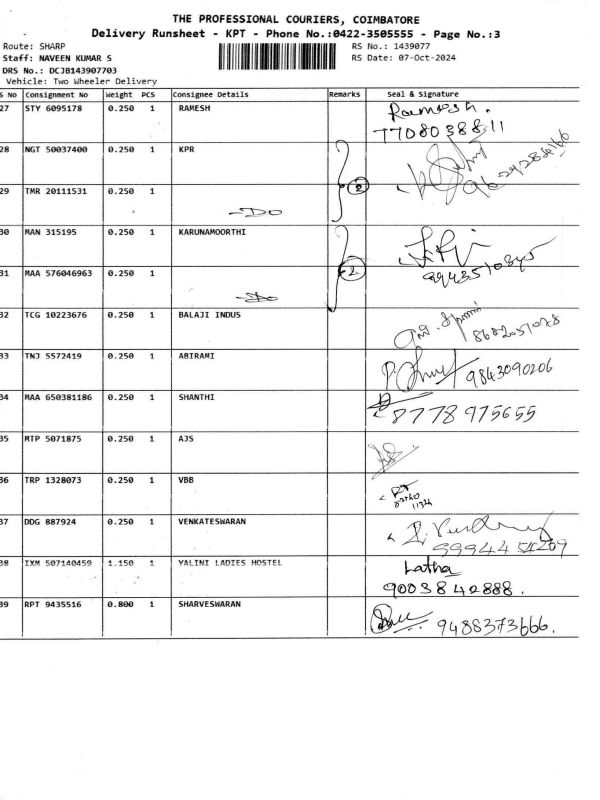 THE PROFESSIONAL COURIERS, COIMBATORE
Delivery Runsheet - KPT - Phone No.:0422-3505555 - Page No.:3
Route: SHARP
Staff: NAVEEN KUMAR S
DRS No.: DCJB143907703
Vehicle: Two Wheeler Delivery
RS No.: 1439077
RS Date: 07-Oct-2024
S No Consignment No Weight PCS Consignee Details Remarks Seal & Signature
27 STY 6095178 0.250 1 RAMESH Ramesh.
7708038811
28 NGT 50037400 0.250 1 KPR
29 TMR 20111531 0.250 1 2
-Do
30 MAN 315195 0.250 1 KARUNAMOORTHI
31 MAA 576046963 0.250 1 2 9443510345
-Do
32 TCG 10223676 0.250 1 BALAJI INDUS 8682051078
33 TNJ 5572419 0.250 1 ABIRAMI 9843090206
34 MAA 650381186 0.250 1 SHANTHI 8778975655
35 MTP 5071875 0.250 1 AJS
36 TRP 1328073 0.250 1 VBB
37 DDG 887924 0.250 1 VENKATESWARAN
38 IXM 507140459 1.150 1 YALINI LADIES HOSTEL Latha
9003842888.
39 RPT 9435516 0.800 1 SHARVESWARAN 9488373666.